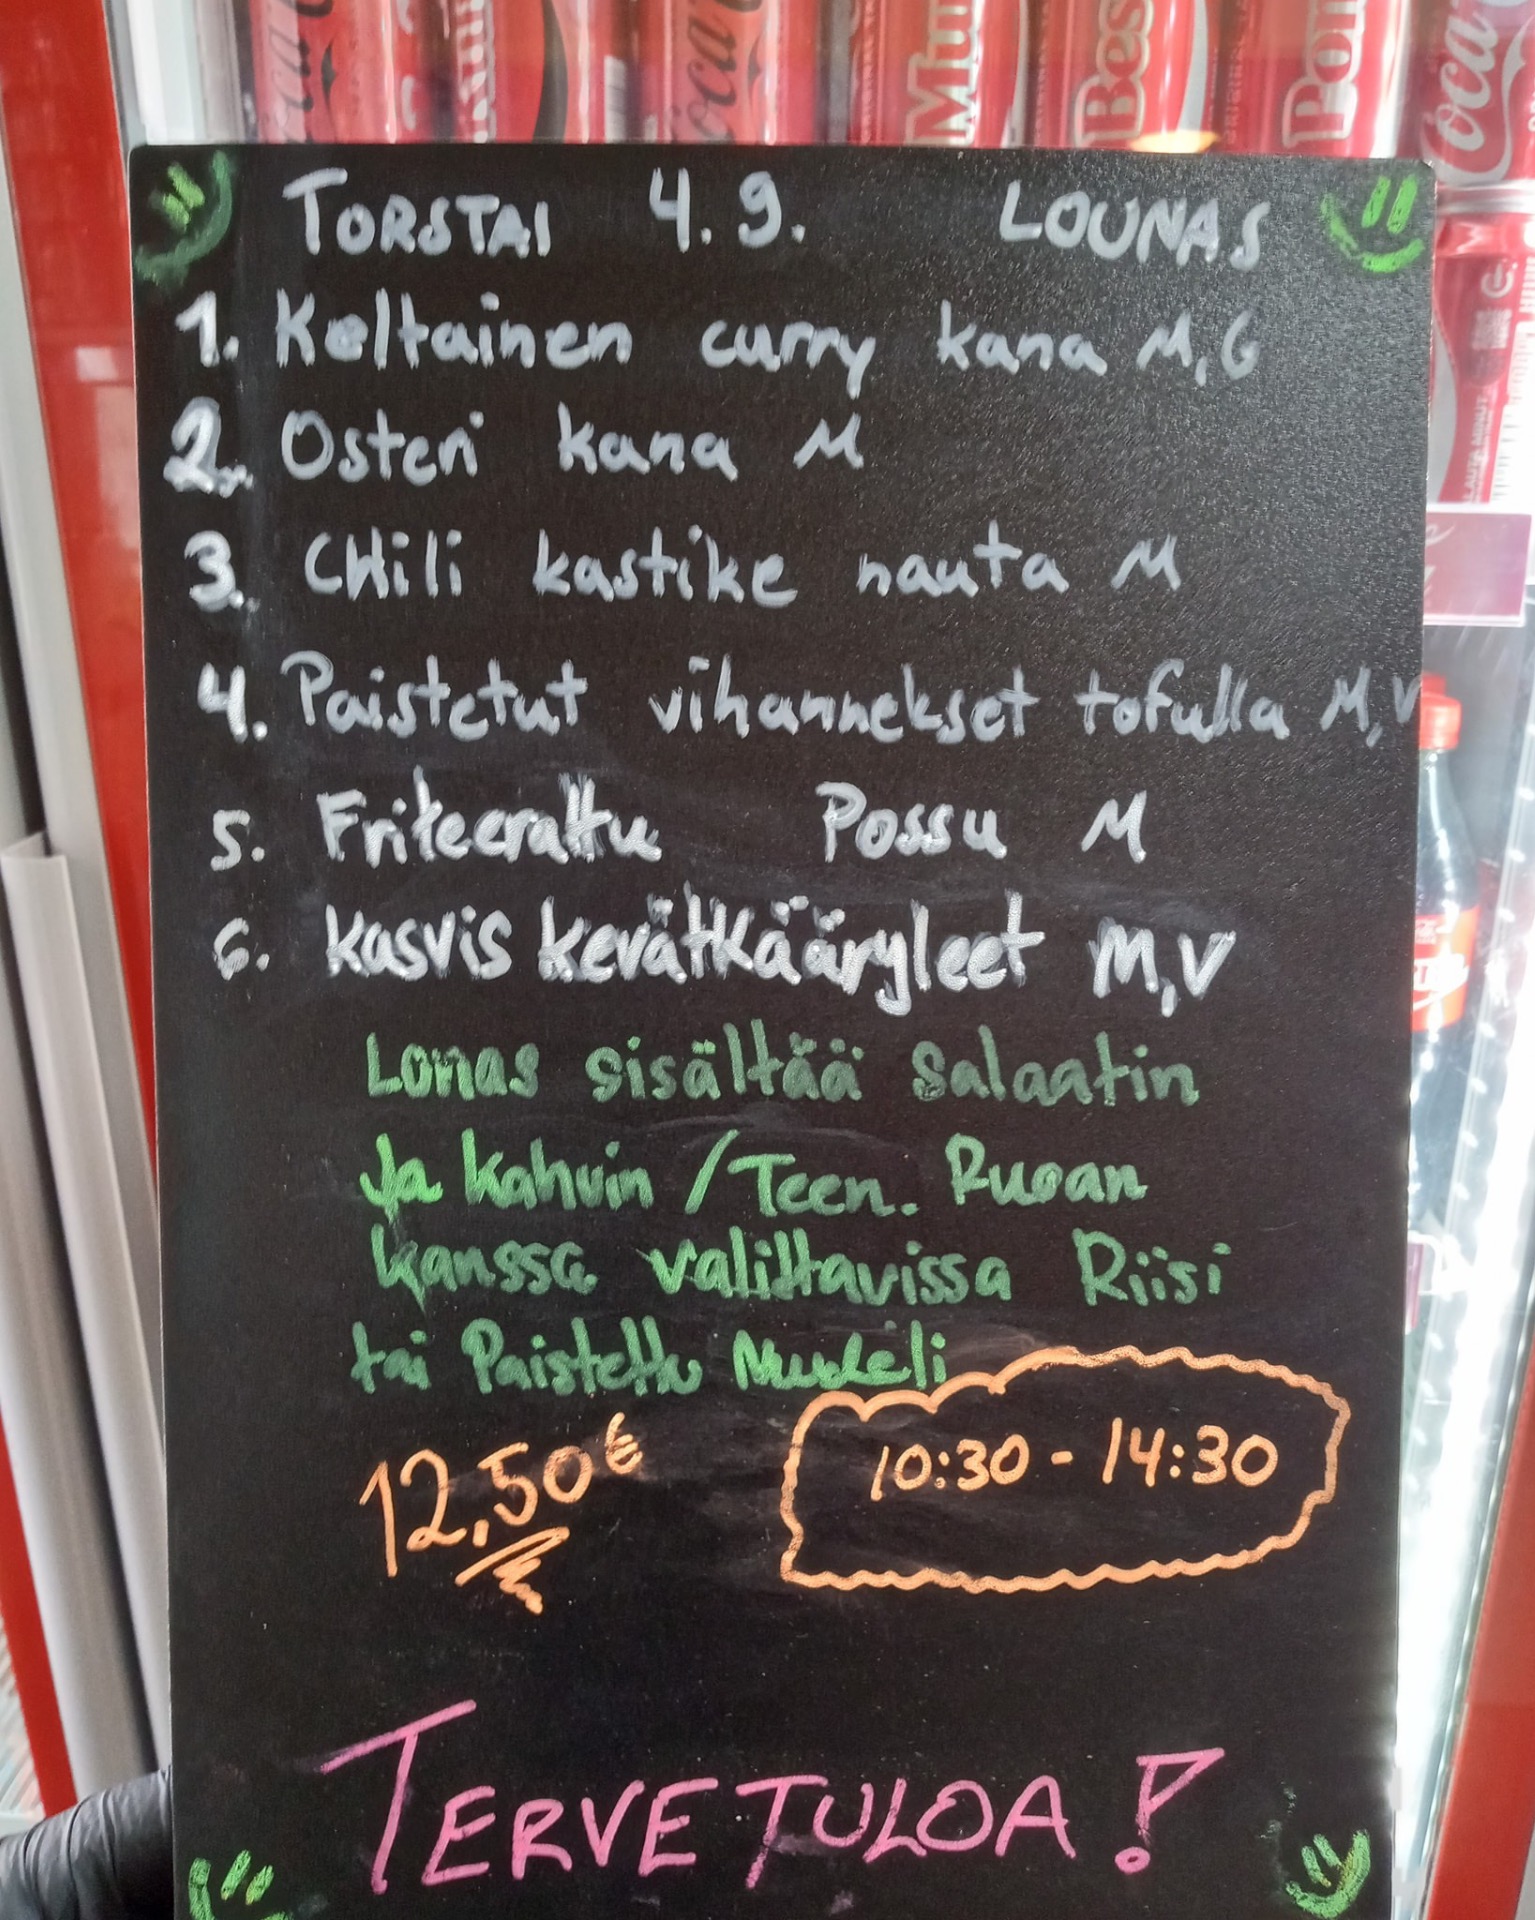 TORSTAI 4.9. LOUNAS
1. Keltainen curry kana M,G
2. Osteri kana M
3. CHili kastike nauta M
4. Paistetut vihannekset tofulla M,V
5. Friteerattu Possu M
6. kasvis kevätkääryleet M,V
Lonas sisältää salaatin
Ja kahvin / Teen. Ruoan
kanssa valittavissa Riisi
tai Paistettu Nuudeli
12,50€
10:30 - 14:30
TERVETULOA!
Coca
Mu
Bes
Pon
Coca